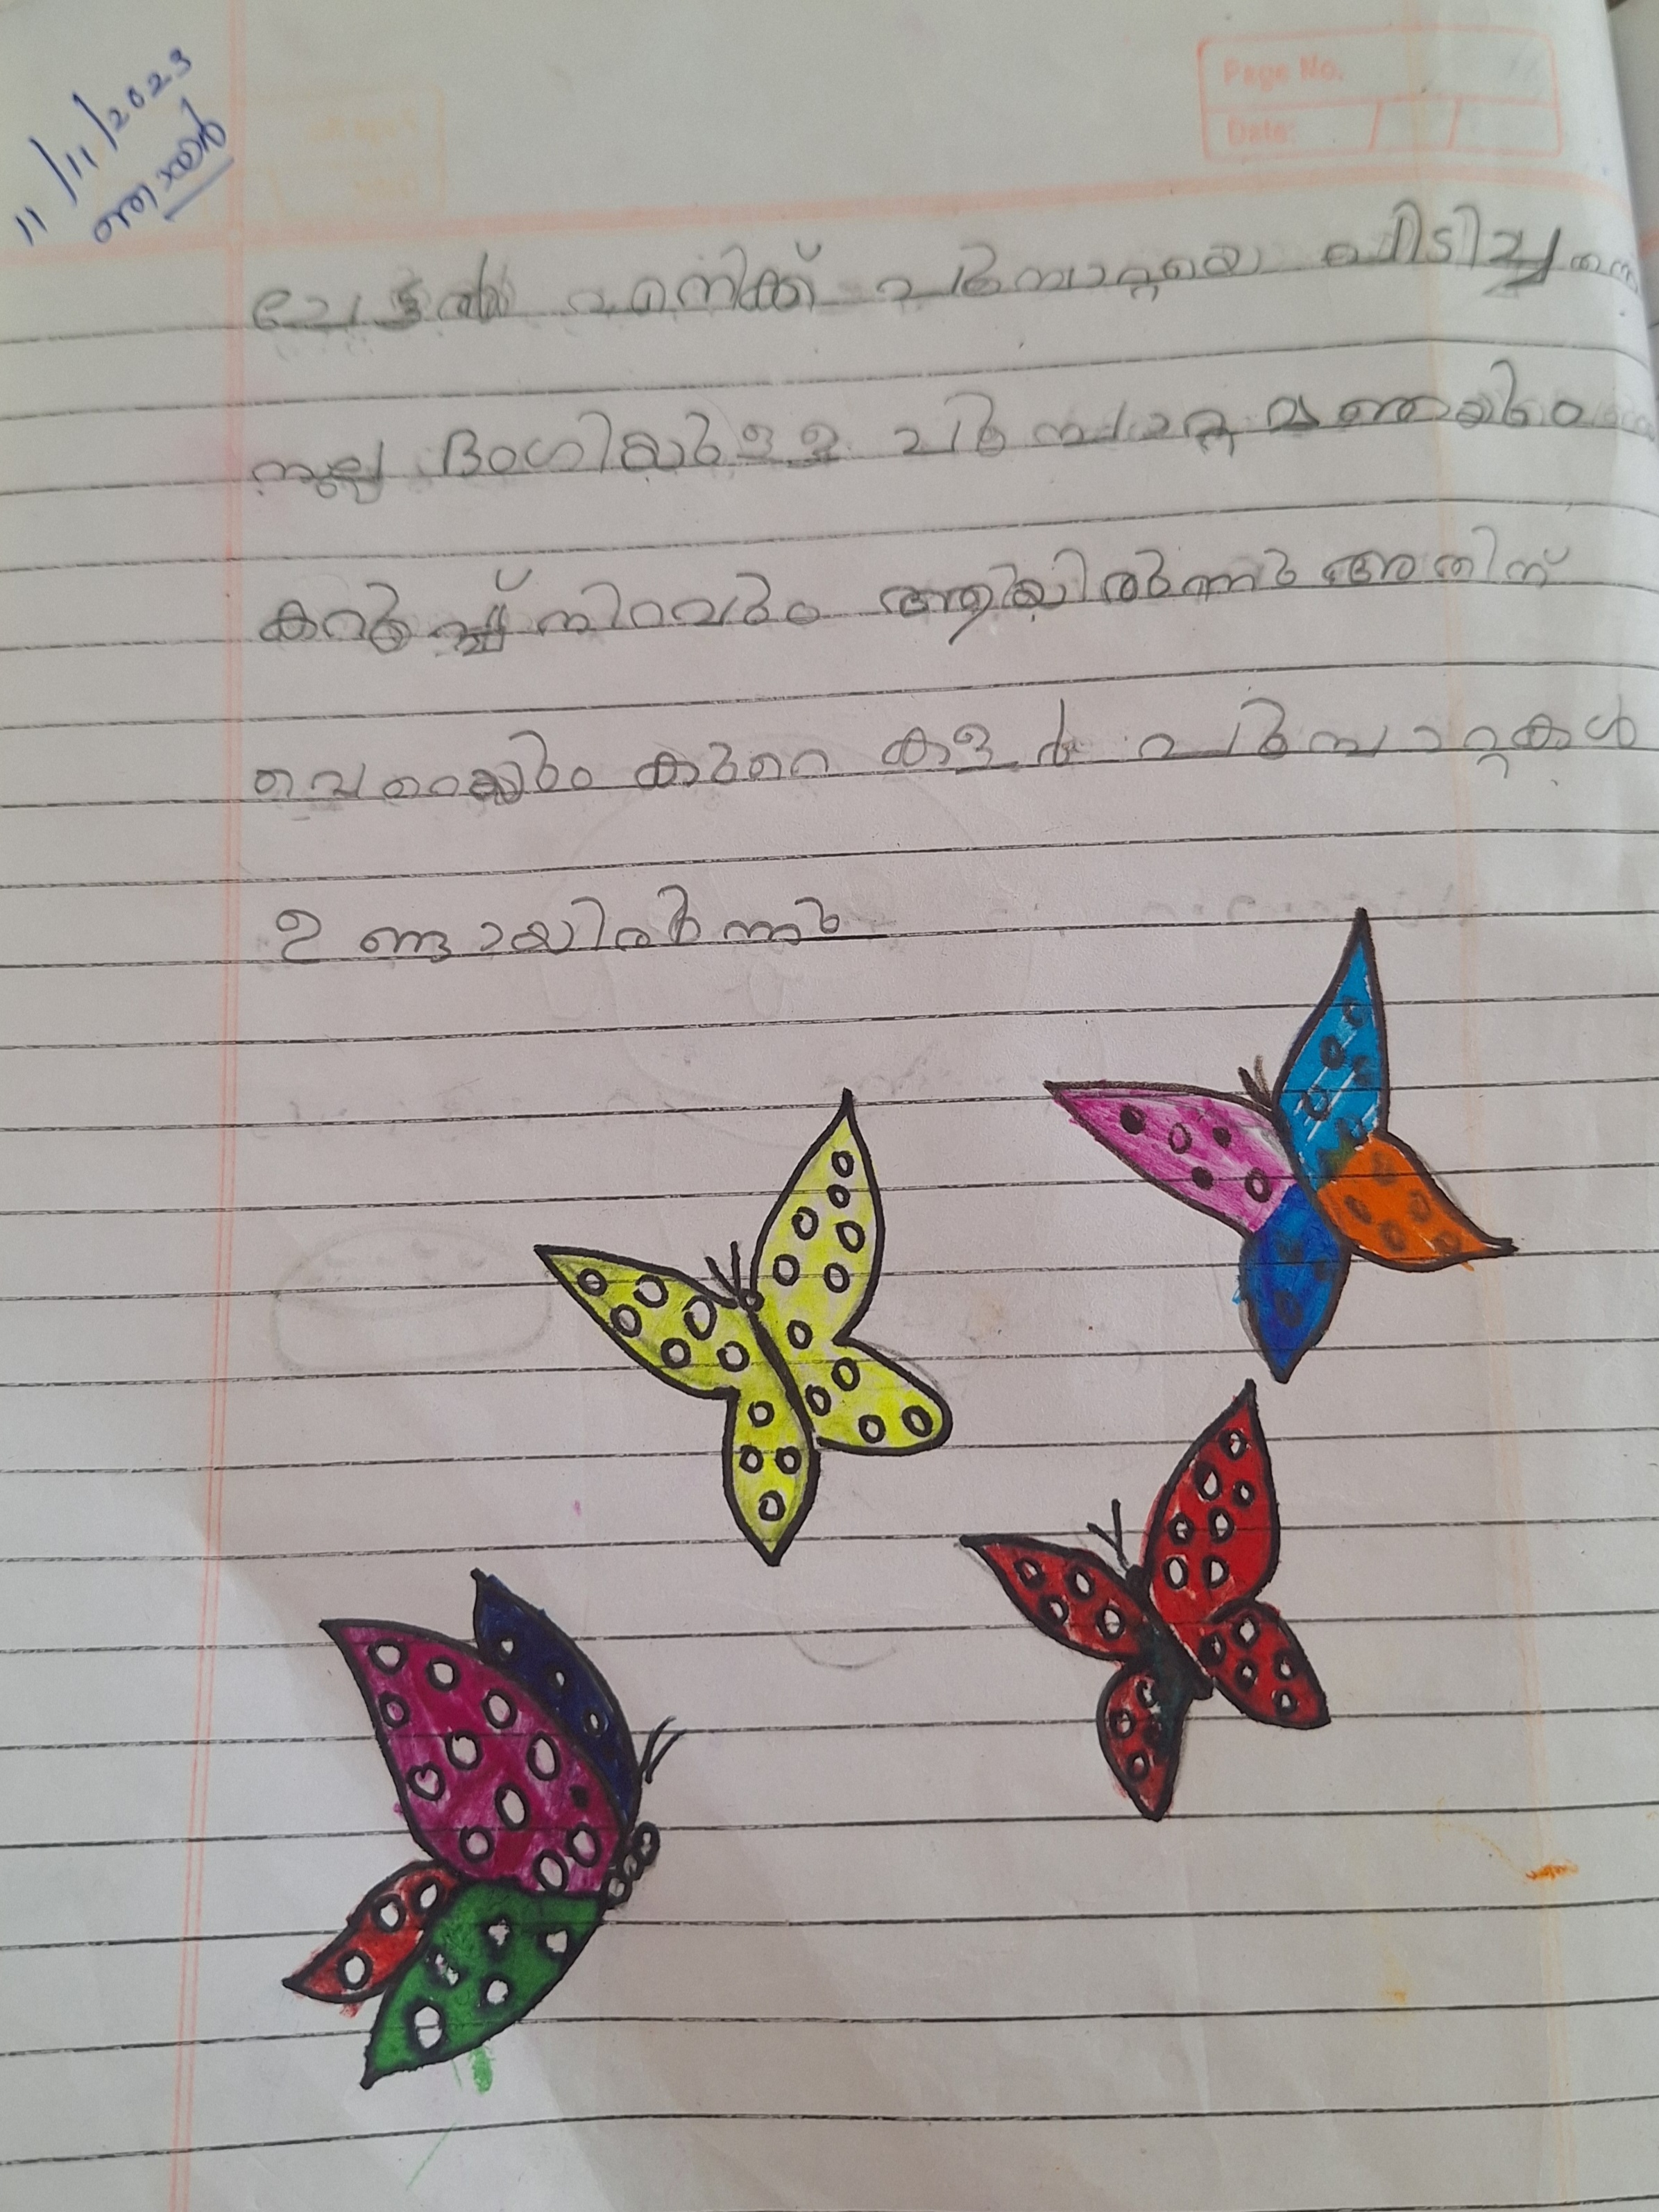 11/11/2023
ഞായർ
Page No.
Date:
ചേട്ടൻ എനിക്ക് പൂമ്പാറ്റയെ പിടിച്ചു തന്നു
നല്ല ഭംഗിയുള്ള പൂമ്പാറ്റ മഞ്ഞയും
കറുപ്പ് നിറവും ആയിരുന്നു അതിന്
വെറെയും കുറെ കളർ പൂമ്പാറ്റകൾ
ഉണ്ടായിരുന്നു